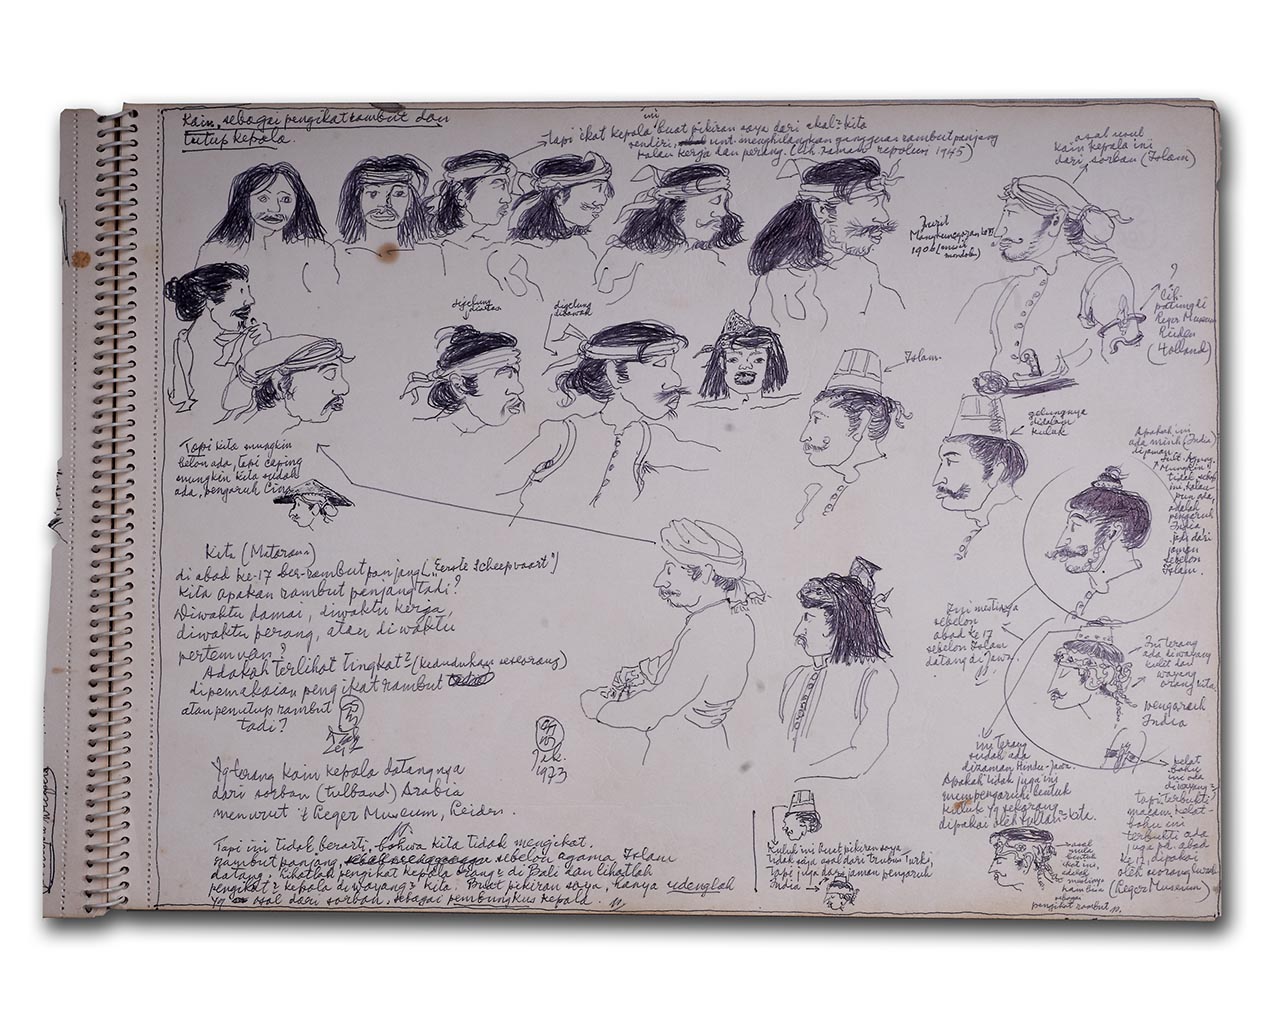 Kain, sebagai pengikat rambut dan
tutup kepala.
ini
tapi ikat kepala buat pikiran saya dari akal2 kita
sendiri, unt. menghilangkan gangguan rambut panjang
dalam kerja dan perang. (lih. zaman repolusi 1945)
asal usul
kain kepala ini
dari sorban (Islam)
Mangkunegaran ke VI
1906
?
Leger Museum
(Holland)
digelung
diatas
digelung
dibawah
Islam
gelungnya
didalam
kuluk
Tapi kita mungkin
belon ada, tapi caping
mungkin kita sudah
ada, pengaruh Cina
Apakah ini
ada mirih (India)
dijaman
Sult. Agung
Mungkin
tidak
ini, kalau
pun ada,
adalah
pengaruh
India
jadi dari
jaman
sebelon
Islam.
Kita (Mataram)
di abad ke-17 ber-rambut panjang ("Eerste Scheepvaart")
Kita apakan rambut panjang tadi?
Diwaktu damai, diwaktu kerja,
diwaktu perang, atau di waktu
pertemuan?
Adakah terlihat tingkat2 (kedudukan seseorang)
dipemakaian pengikat rambut
atau penutup rambut
tadi?
Ini mestinya
sebelon
abad ke 17
sebelon Islam
datang di Jawa.
Ini terang
ada diwayang
kulit dan
wayang
orang kita.
pengaruh
India
1973
Yg terang kain kepala datangnya
dari sorban (tulband) Arabia
menurut 't Leger Museum, Leiden.
ini terang
sudah ada
dizaman Hindu-Jawa.
Apakah tidak juga ini
mempengaruhi bentuk
kuluk yg sekarang
dipakai oleh sultan2 kita.
kelat
bahu
ini ada
diwayang2
tapi terbukti
macam kelat-
bahu ini
terbukti ada
juga pd. abad
ke 17, dipakai
oleh seorang
(Leger Museum)
Tapi ini tidak berarti, bahwa kita tidak mengikat
rambut panjang, sebelon agama Islam
datang. Lihatlah pengikat kepala orang2 di Bali dan lihatlah
pengikat2 kepala diwayang2 kita. Buat pikiran saya, hanya udenglah
yg asal dari sorban, sebagai pembungkus kepala.
Kuluk ini buat pikiran saya
tidak saja asal dari Turki,
tapi juga dari jaman pengaruh
India
asal
mula
bentuk
mestinya
rambut
sebagai
pengikat rambut